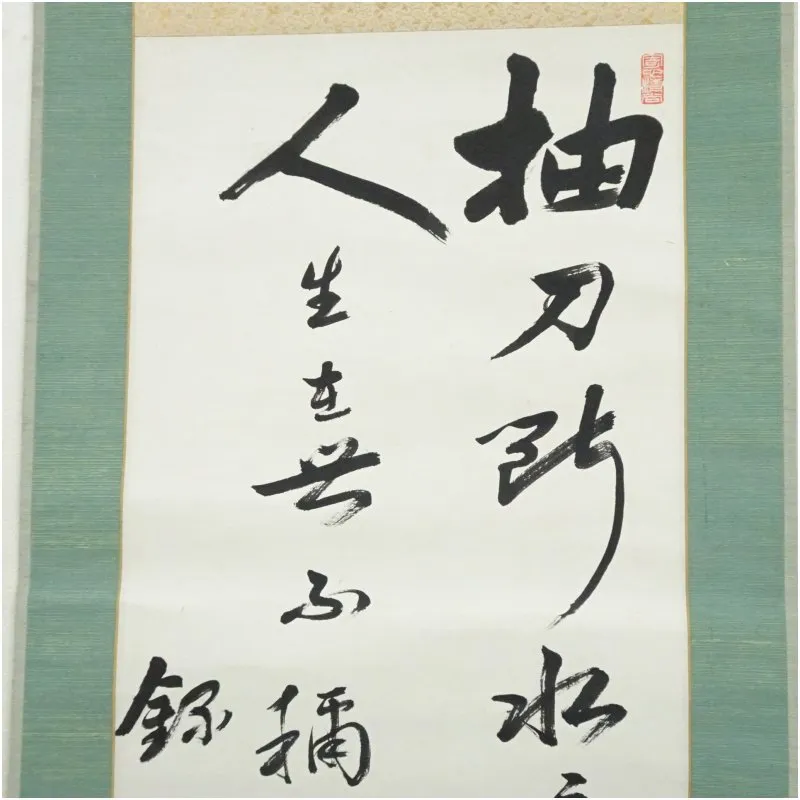 抽刀断水
人生在世不稱
録